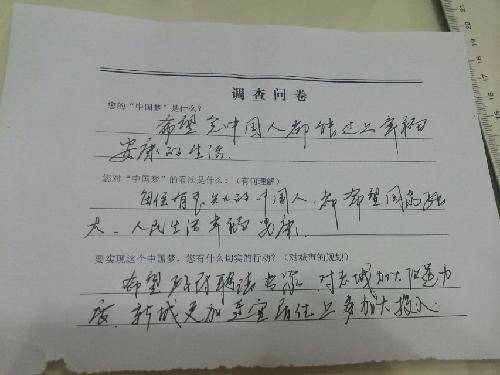 调查问卷
您的“中国梦”是什么?
希望全中国人都能过上幸福
安康的生活。
您对“中国梦”的看法是什么:(有何理解)
每位有志的中国人,都希望国富强
大、人民生活幸福安康。
要实现这个中国梦,您有什么切实的行动?(对城市的规划)
希望政府聘请专家,对老城加大改造力
度,新城更加适宜居住上多加大投入。
15 16 17 18 19 20 21